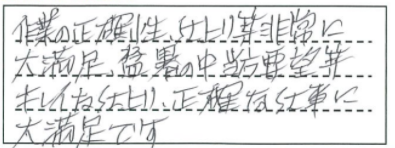 作業の正確性、仕上り等非常に
大満足、猛暑の中当方要望等
キレイな仕上り、正確な仕事に
大満足です